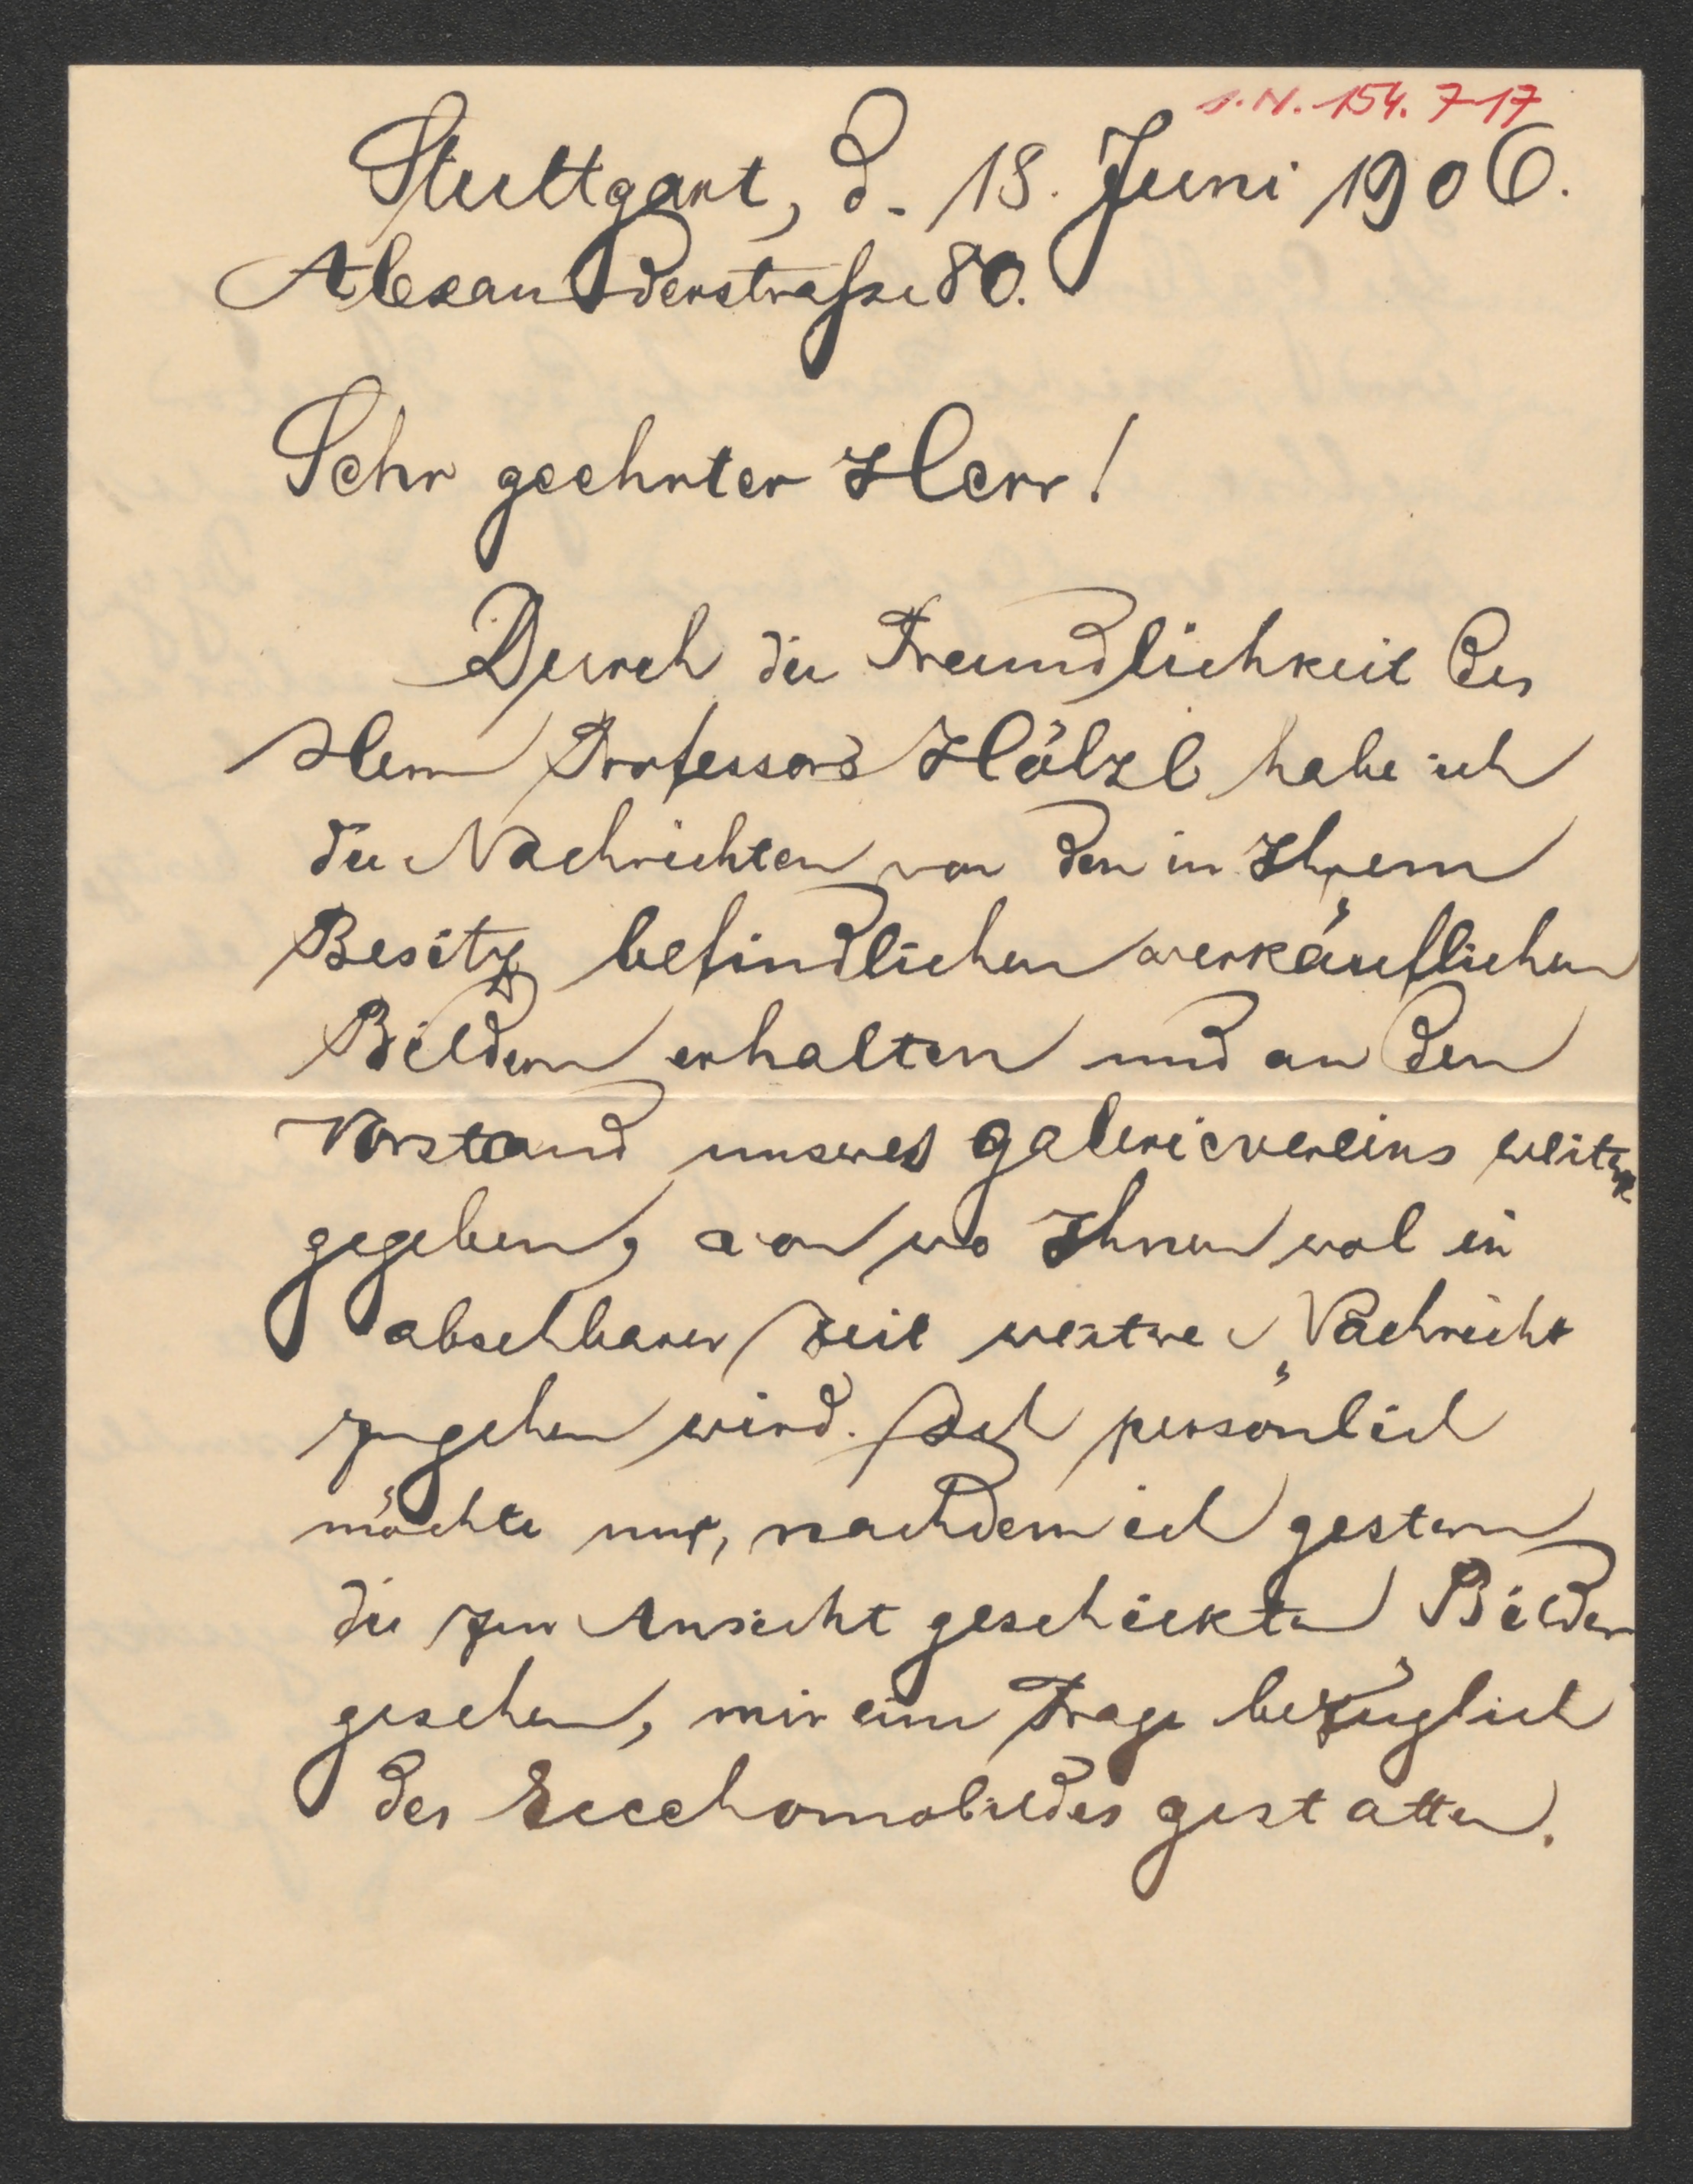 J.N. 154.717
Stuttgart, d. 18. Juni 1906.
Alexanderstraße 80.
Sehr geehrter Herr!
Durch die Freundlichkeit des
Herrn Professors Hölzl habe ich
die Nachrichten von den in Ihrem
Besitz befindlichen verkäuflichen
Bildern erhalten und an den
Vorstand unseres Galerievereins weiter
gegeben, von wo Ihnen wol in
absehbarer Zeit weitere Nachricht
zugehen wird. Ich persönlich
möchte nur, nachdem ich gestern
die zur Ansicht geschickten Bilder
gesehen, mir eine Frage bezüglich
des Eccehomobildes gestatten.